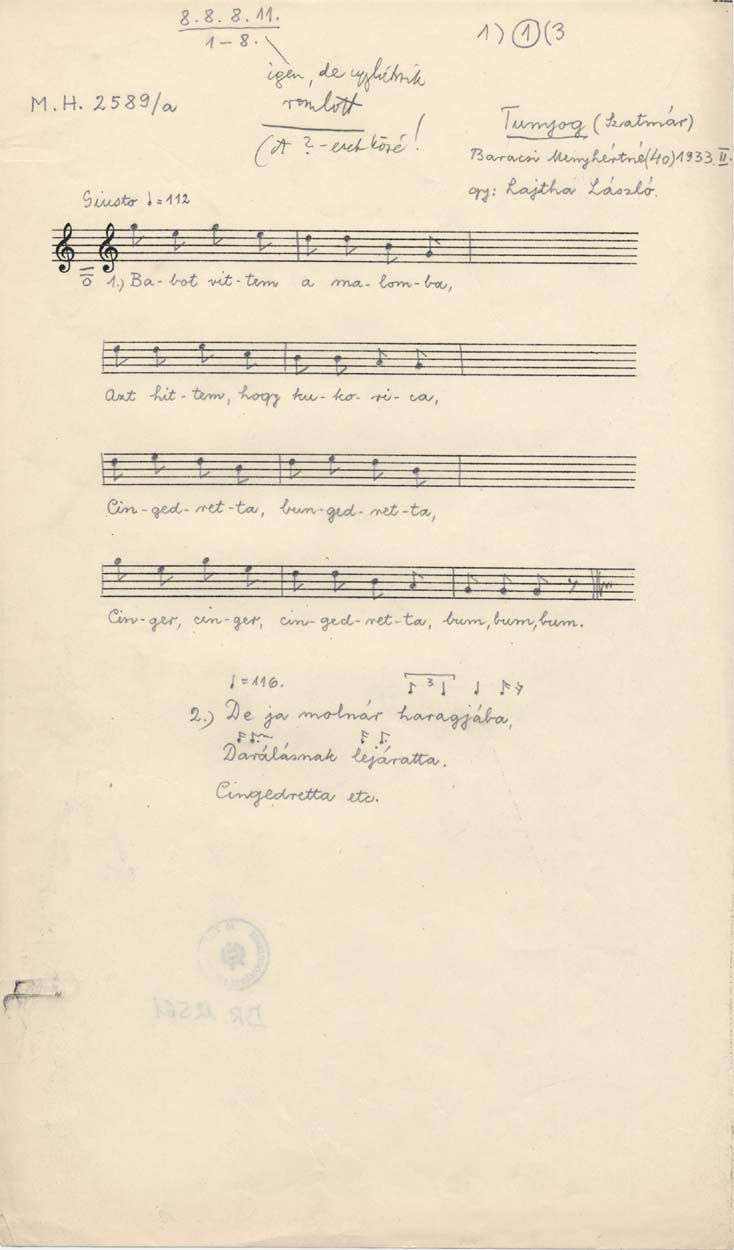 8. 8. 8. 11.
1 – 8.
1) ① (3
igen, de
romlott
(A ? - esek közé!
M. H. 2589/a
Tunyog (Szatmár)
Baracsi Menyhértné (40) 1933. II.
gy: Lajtha László.
Giusto ♩ = 112
1.) Ba - bot vit - tem a ma - lom - ba,
Azt hit - tem, hogy ku - ko - ri - ca,
Cin - ged - ret - ta, bun - ged - ret - ta,
Cin - ger, cin - ger, cin - ged - ret - ta, bum, bum, bum.
♩ = 116.
3
2.) De ja molnár haragjába,
Darálásnak lejáratta.
Cingedretta etc.